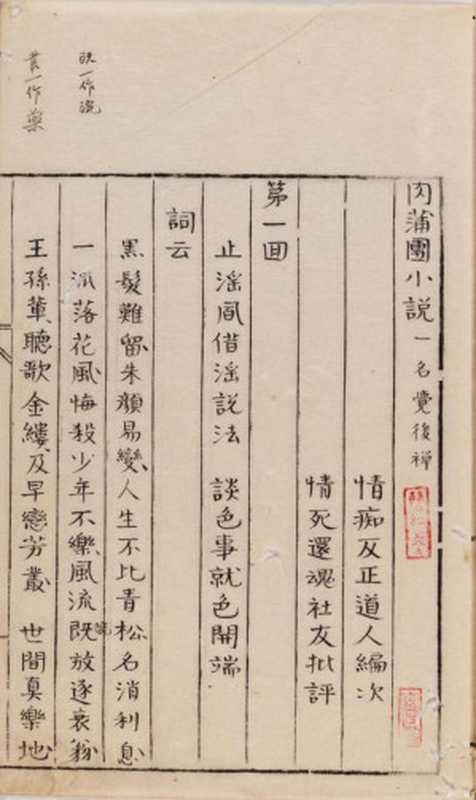 肉蒲團小說 一名覺後禪
情痴反正道人編次
情死還魂社友批評
第一回
止淫風借淫說法 談色事就色開端
詞云
黑髮難留朱顏易變人生不比青松名消利息
一派落花風悔殺少年不樂風流既放逐衰翁
王孫輩聽歌金縷及早戀芳叢 世間真樂地
既一作
一作